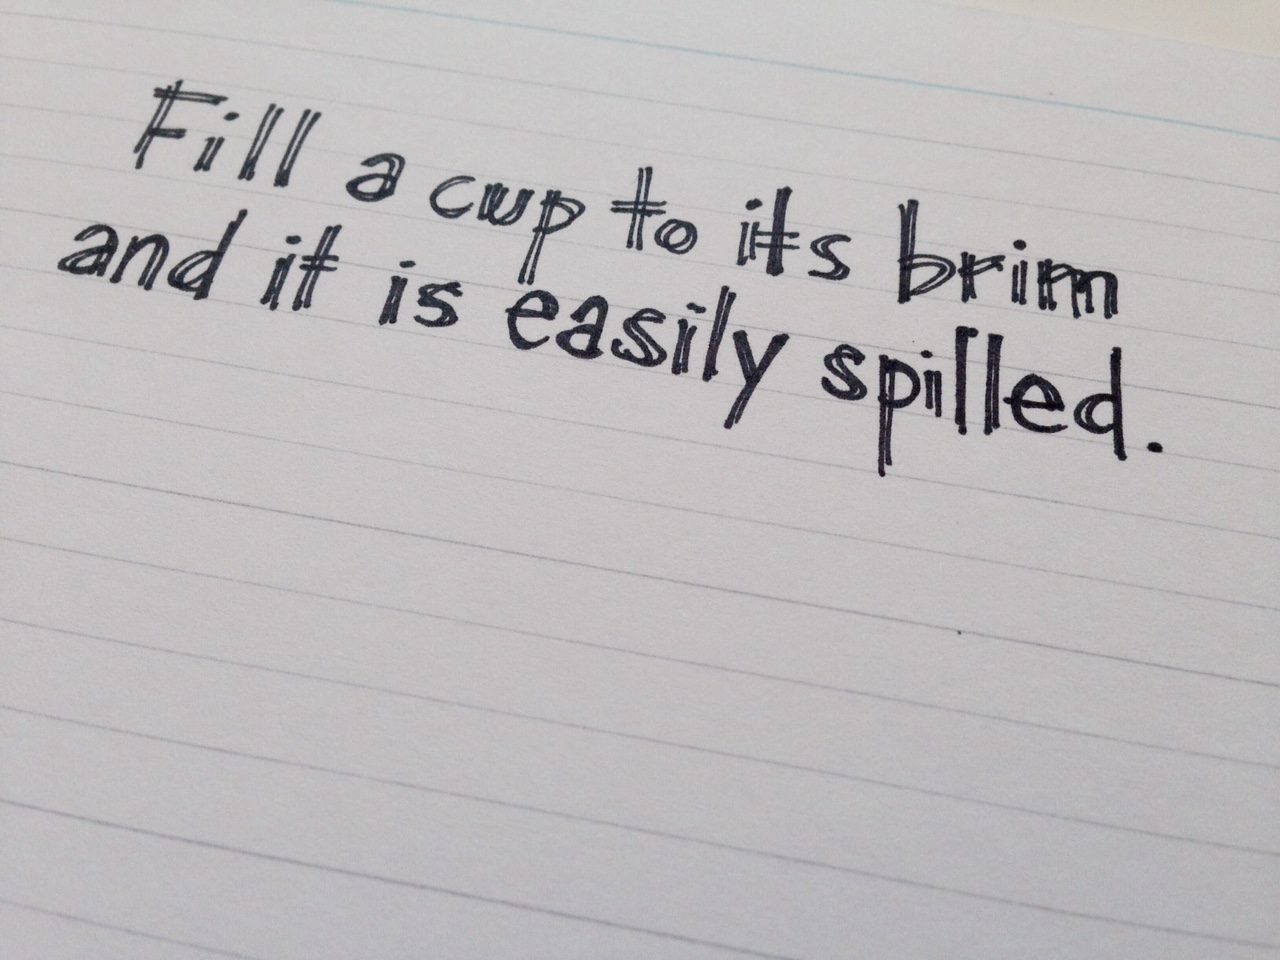 Fill a cup to its brim
and it is easily spilled.